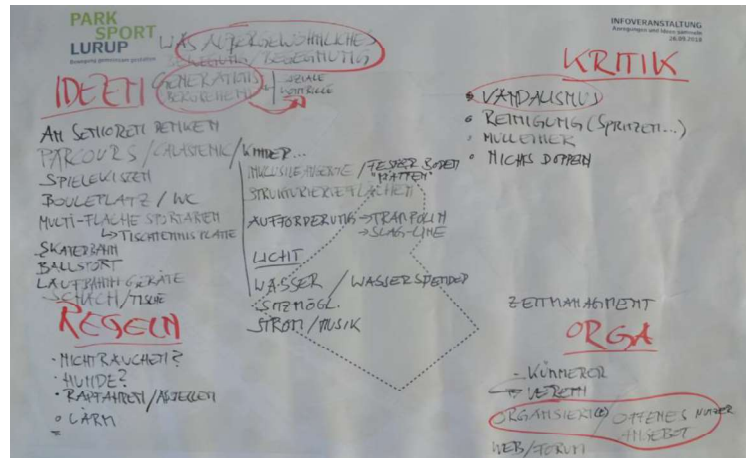 PARK
SPORT
LURUP
Bewegung gemeinsam gestalten
INFOVERANSTALTUNG
Anregungen und Ideen sammeln
26.09.2018
WAS AUßERGEWÖHNLICHES
BEWEGUNG/BEGEGNUNG
IDEEN
SOZIALE
KONTROLLE
AN SENIOREN DENKEN
PARCOURS / CALASTENIC / KINDER...
SPIELEKISTEN
BOULEPLATZ / WC
MULTI-FLÄCHE SPORTARTEN
↳ TISCHTENNIS PLATTE
SKATERBAHN
BALLSPORT
LAUFBAHN GERÄTE
SCHACH/TISCHE
INKLUSIVE ANGEBOTE / FESTER BODEN
"MATTEN"
STRUKTURIERTE FLÄCHEN
AUFFORDERUNG → TRAMPOLIN
→ SLAG-LINE
LICHT
WASSER / WASSERSPENDER
SITZMÖGL.
STROM / MUSIK
REGELN
· NICHT RAUCHEN?
· HUNDE?
· RADFAHREN / ABSTELLEN
· LÄRM
KRITIK
· VANDALISMUS
· REINIGUNG (SPRITZEN...)
· MÜLLEIMER
· NICHTS DOPPELN
ZEITMANAGMENT
ORGA
- KÜMMERER
→ VEREIN
ORGANISIERT / OFFENES NUTZER
ANGEBOT
WEB/FORUM